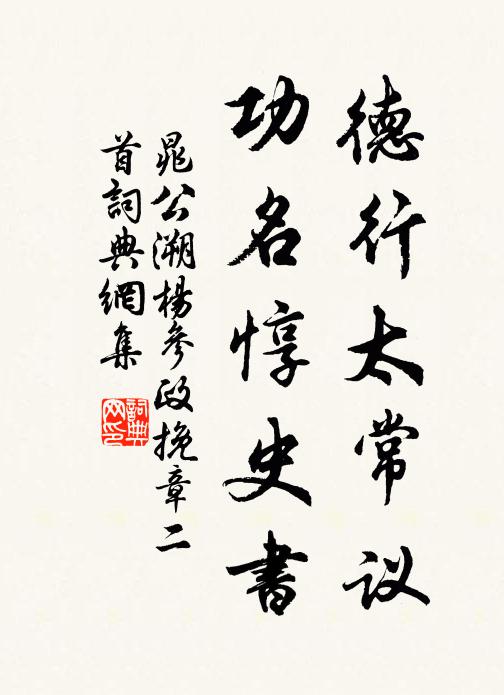 德行太常议
功名惇史書
晁公溯楊參政挽章二
首詞典網集
詞典网印